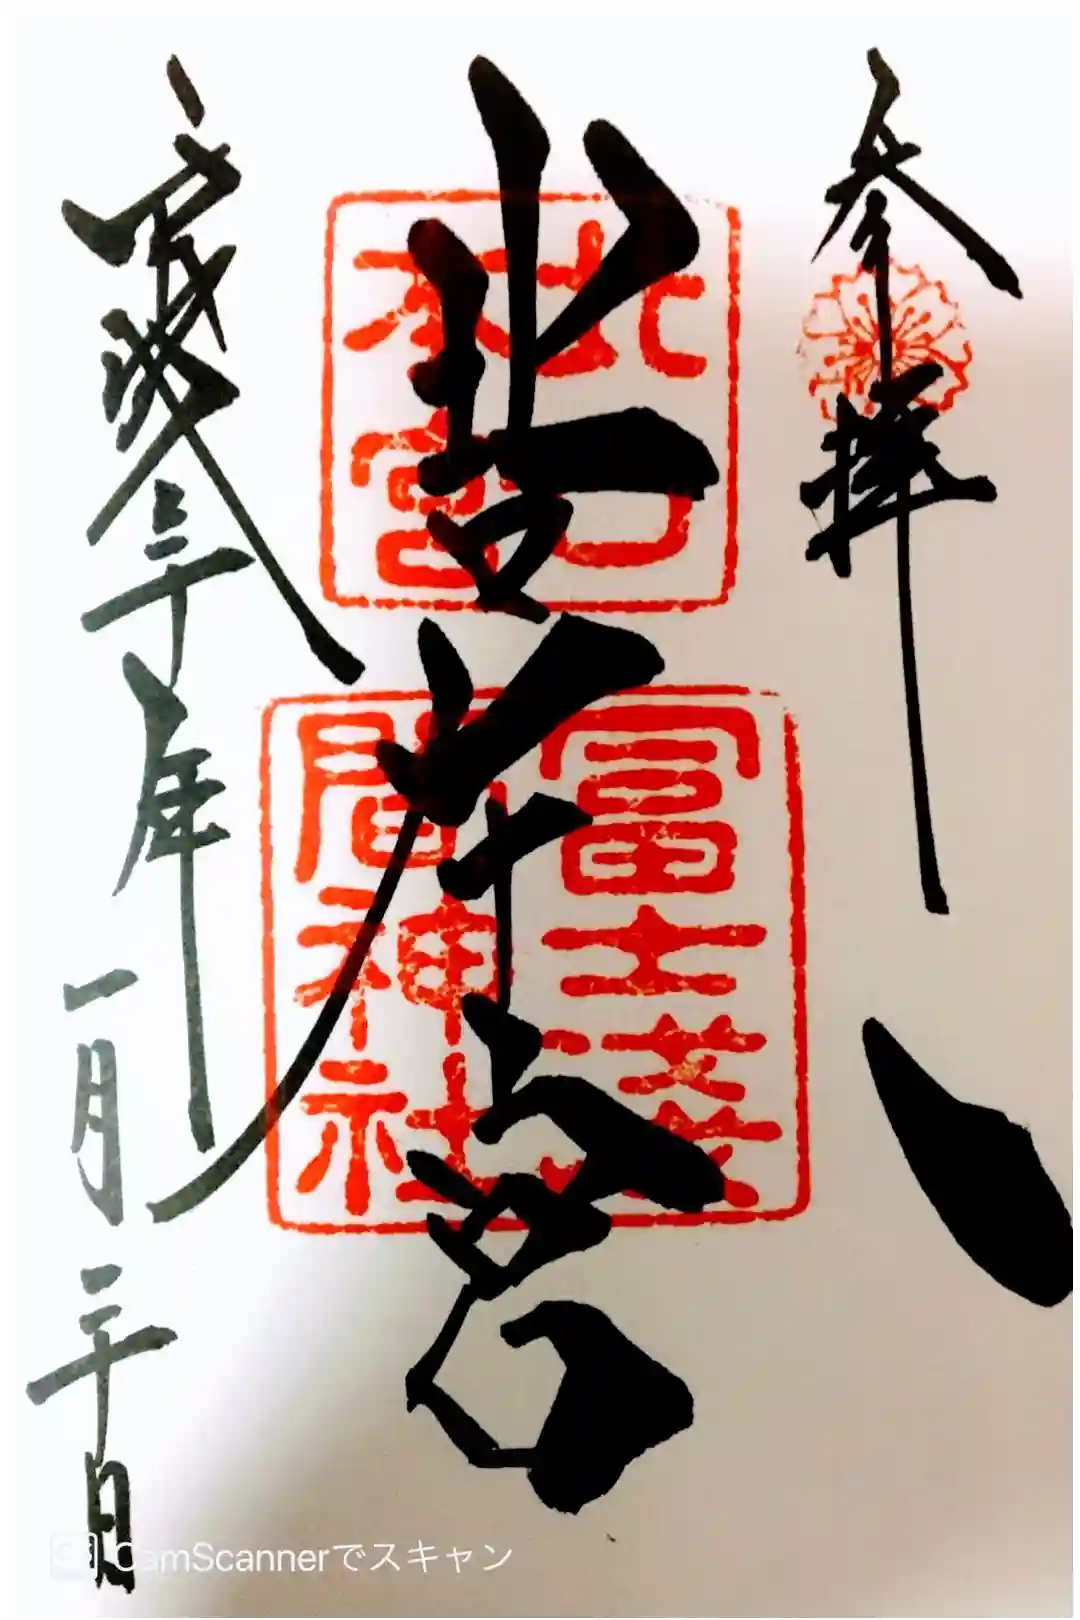 参拝
北口本宮
北口
本宮
冨士淺
間神社
三十年
一月二十日
CamScannerでスキャン